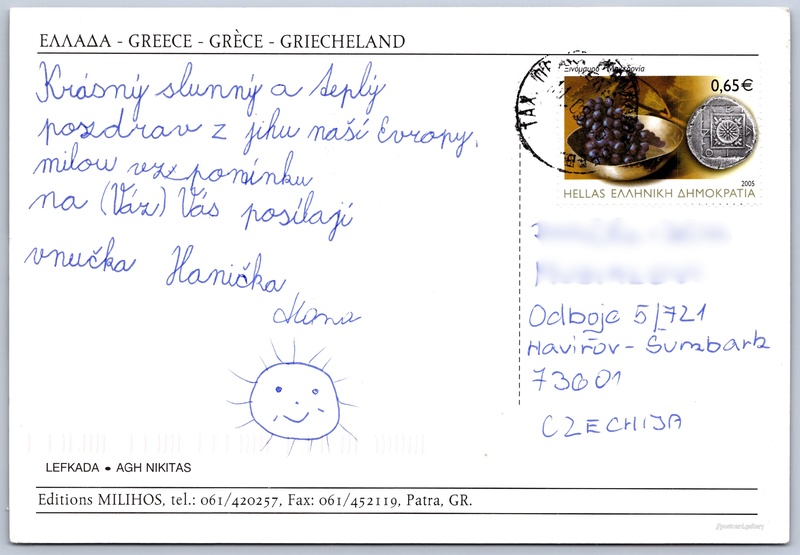 ΕΛΛΑΔΑ - GREECE - GRÈCE - GRIECHELAND
Krásný slunný a teplý
pozdrav z jihu naší Evropy,
milou vzpomínku
na (Váz) Vás posílají
vnučka Hanička
Hana
Ξινόμαυρο - Μακεδονία
0,65€
2005
HELLAS ΕΛΛΗΝΙΚΗ ΔΗΜΟΚΡΑΤΙΑ
TAX.
Odboje 5/721
Havířov - Šumbark
73601
CZECHIJA
LEFKADA • AGH NIKITAS
Editions MILIHOS, tel.: 061/420257, Fax: 061/452119, Patra, GR.